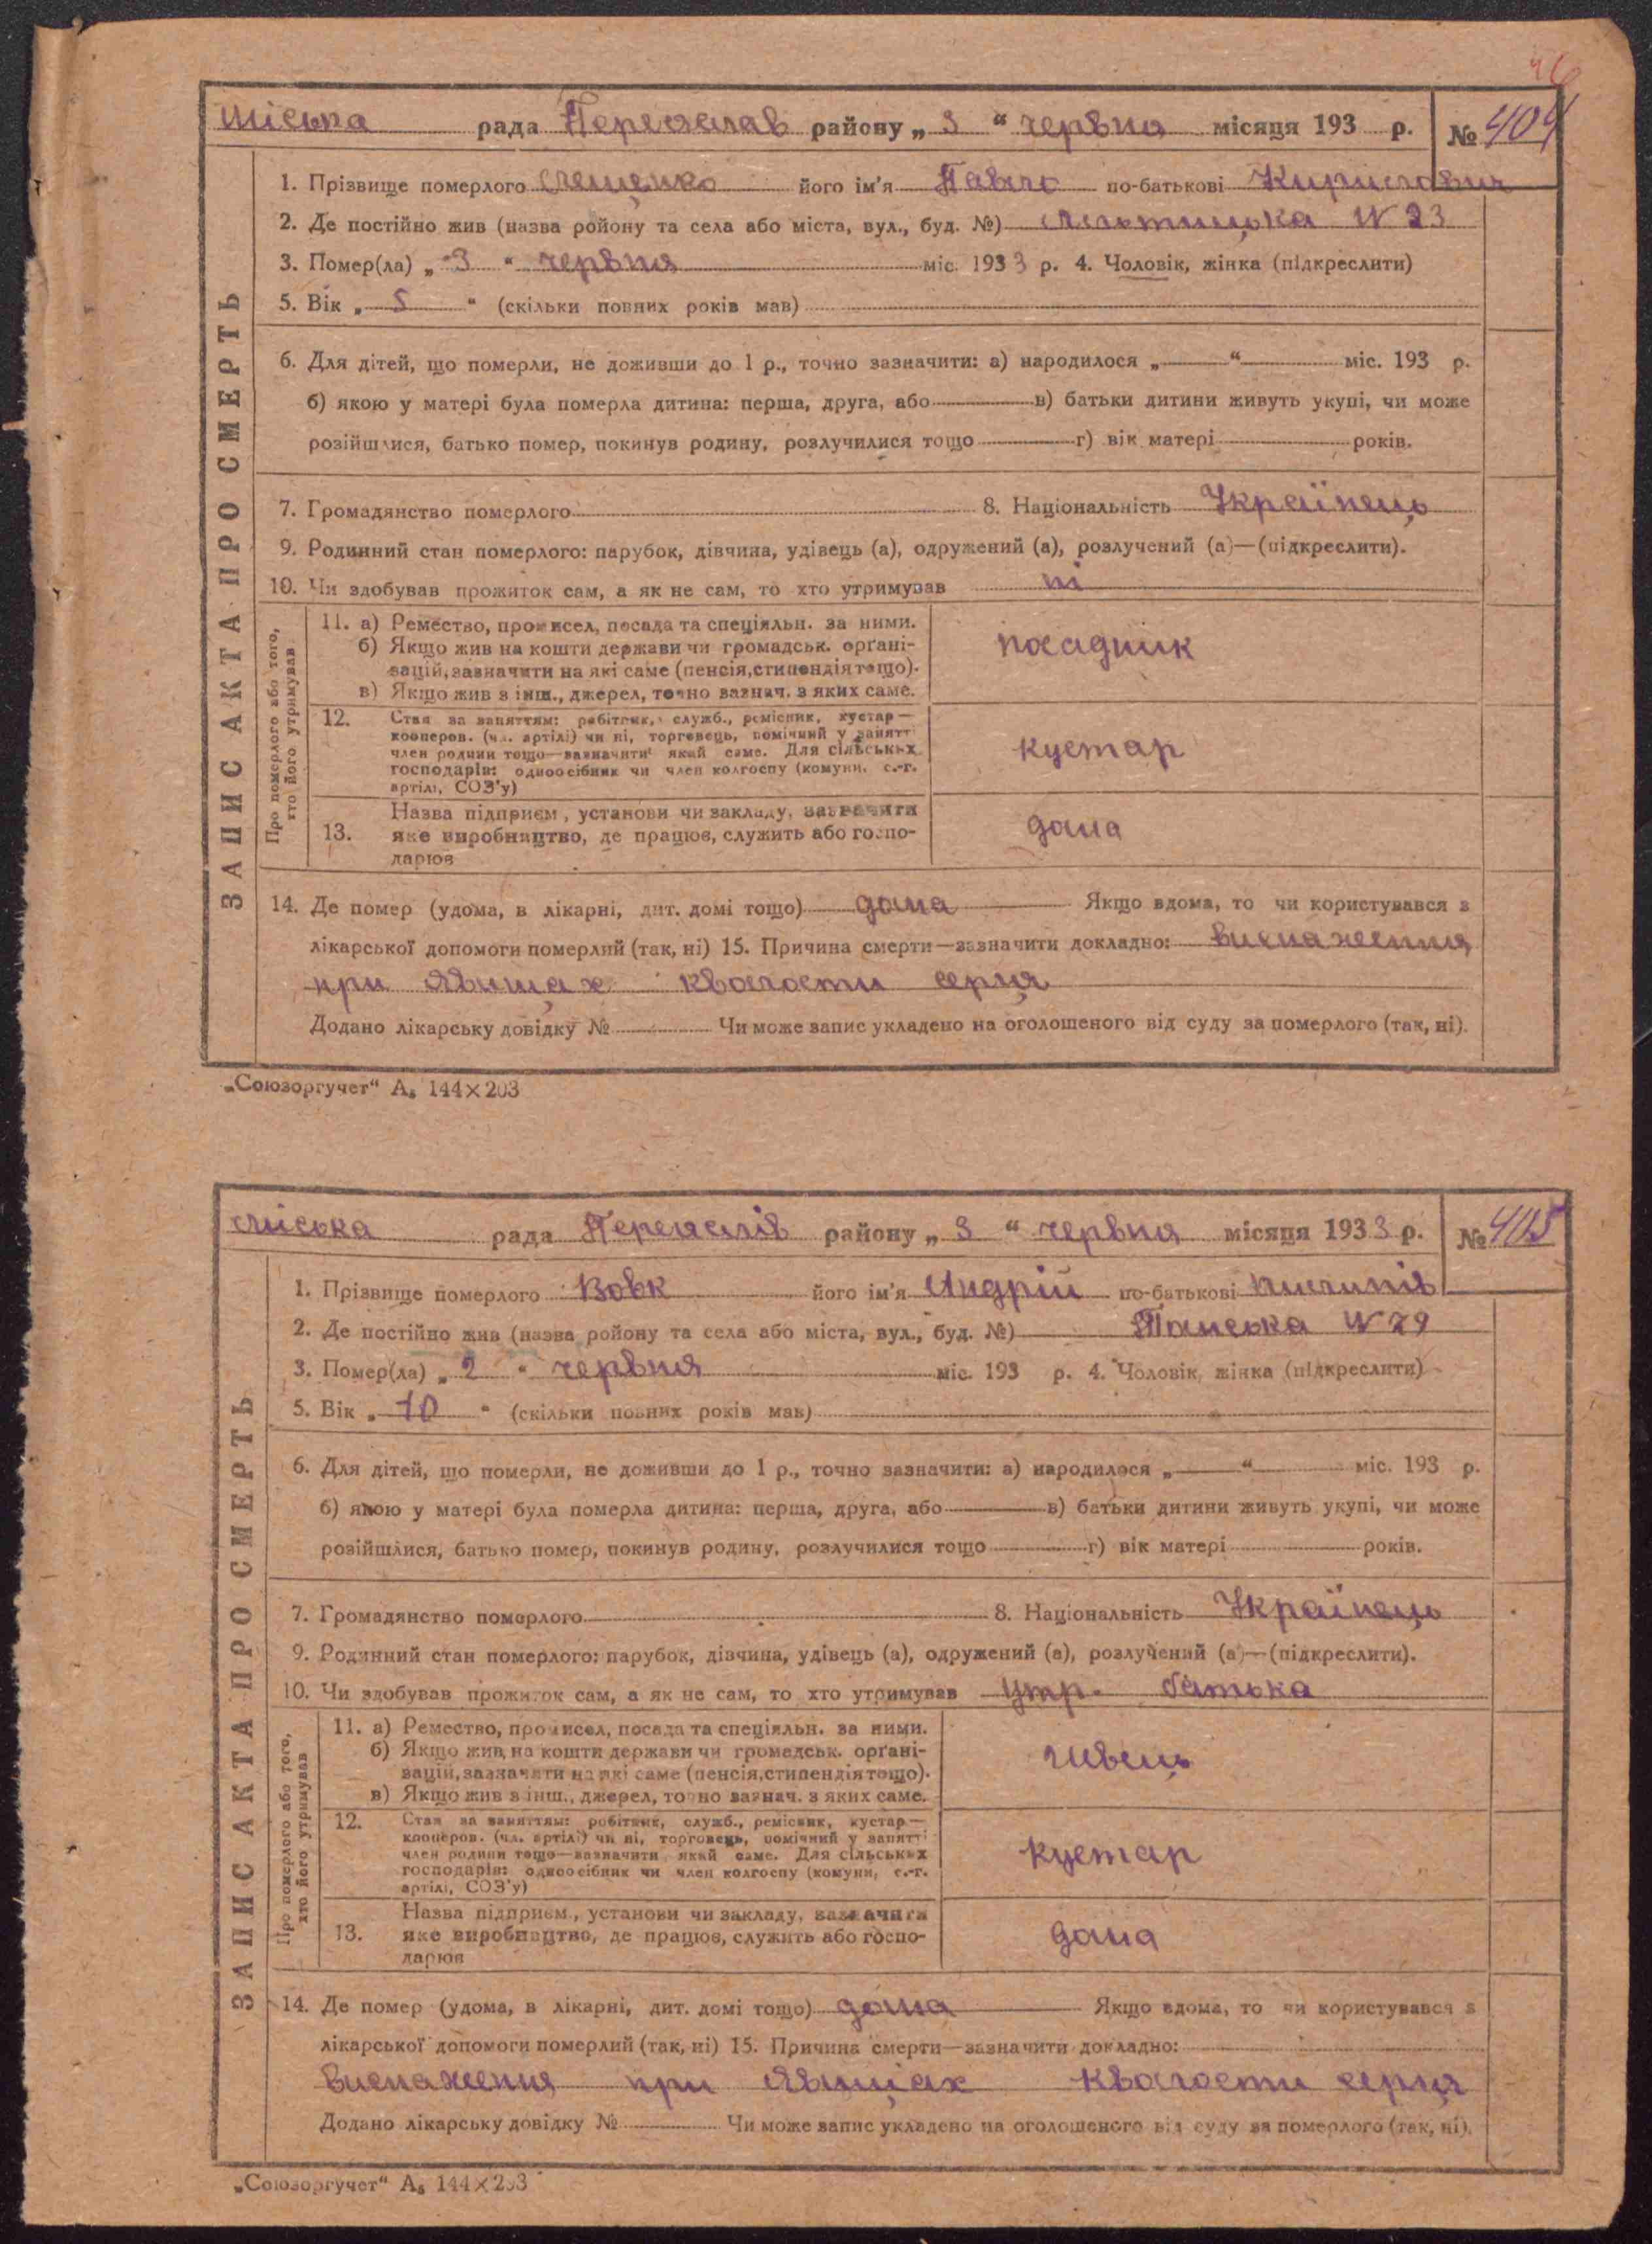 46
міська рада Переяслав району „ 3 “ червня місяця 193 р. № 404
ЗАПИС АКТА ПРО СМЕРТЬ
1. Прізвище померлого його ім'я Павло по-батькові Кирилович
2. Де постійно жив (назва ройону та села або міста, вул., буд. №) N 23
3. Помер(ла) „ 3 “ червня міс. 193 3 р. 4. Чоловік, жінка (підкреслити)
5. Вік „ 5 “ (скільки повних років мав)
6. Для дітей, що померли, не доживши до 1 р., точно зазначити: а) народилося „ “ міс. 193 р.
б) якою у матері була померла дитина: перша, друга, або в) батьки дитини живуть укупі, чи може
розійшлися, батько помер, покинув родину, розлучилися тощо г) вік матері років.
7. Громадянство померлого 8. Національність Українець
9. Родинний стан померлого: парубок, дівчина, удівець (а), одружений (а), розлучений (а)—(підкреслити).
10. Чи здобував прожиток сам, а як не сам, то хто утримував ні
Про померлого або того, хто його утримував
11. а) Ремество, промисел, посада та спеціяльн. за ними.
б) Якщо жив на кошти держави чи громадськ. органі-
зацій, зазначити на які саме (пенсія, стипендія тощо).
в) Якщо жив з інш., джерел, точно вазнач. з яких саме.
посадник
12. Стан за заняттям: робітник, служб., ремісник, кустар—
кооперов. (чл. артілі) чи ні, торговець, помічний у занятті
член родини тощо—зазначити який саме. Для сільських
господарів: одноосібник чи член колгоспу (комуни, с.-г.
артілі, СОЗ'у)
кустар
13. Назва підприєм., установи чи закладу, зазначити
яке виробництво, де працює, служить або госпо-
дарює
дома
14. Де помер (удома, в лікарні, дит. домі тощо) дома Якщо вдома, то чи користувався з
лікарської допомоги померлий (так, ні) 15. Причина смерти—зазначити докладно: виснаження
при явищах кволости серця
Додано лікарську довідку № Чи може запис укладено на оголошеного від суду за померлого (так, ні).
„Союзоргучет“ А₅ 144×203
міська рада Переяслів району „ 3 “ червня місяця 193 3 р. № 405
ЗАПИС АКТА ПРО СМЕРТЬ
1. Прізвище померлого Вовк його ім'я Андрій по-батькові
2. Де постійно жив (назва ройону та села або міста, вул., буд. №) N 29
3. Помер(ла) „ 2 “ червня міс. 193 р. 4. Чоловік, жінка (підкреслити)
5. Вік „ 10 “ (скільки повних років мав)
6. Для дітей, що померли, не доживши до 1 р., точно зазначити: а) народилося „ “ міс. 193 р.
б) якою у матері була померла дитина: перша, друга, або в) батьки дитини живуть укупі, чи може
розійшлися, батько помер, покинув родину, розлучилися тощо г) вік матері років.
7. Громадянство померлого 8. Національність Українець
9. Родинний стан померлого: парубок, дівчина, удівець (а), одружений (а), розлучений (а)—(підкреслити).
10. Чи здобував прожиток сам, а як не сам, то хто утримував утр. батька
Про померлого або того, хто його утримував
11. а) Ремество, промисел, посада та спеціяльн. за ними.
б) Якщо жив на кошти держави чи громадськ. органі-
зацій, зазначити на які саме (пенсія, стипендія тощо).
в) Якщо жив з інш., джерел, точно вазнач. з яких саме.
швець
12. Стан за заняттям: робітник, служб., ремісник, кустар—
кооперов. (чл. артілі) чи ні, торговець, помічний у занятті
член родини тощо—зазначити який саме. Для сільських
господарів: одноосібник чи член колгоспу (комуни, с.-г.
артілі, СОЗ'у)
кустар
13. Назва підприєм., установи чи закладу, зазначити
яке виробництво, де працює, служить або госпо-
дарює
дома
14. Де помер (удома, в лікарні, дит. домі тощо) дома Якщо вдома, то чи користувався з
лікарської допомоги померлий (так, ні) 15. Причина смерти—зазначити докладно:
виснаження при явищах кволости серця
Додано лікарську довідку № Чи може запис укладено на оголошеного від суду за померлого (так, ні).
„Союзоргучет“ А₅ 144×203